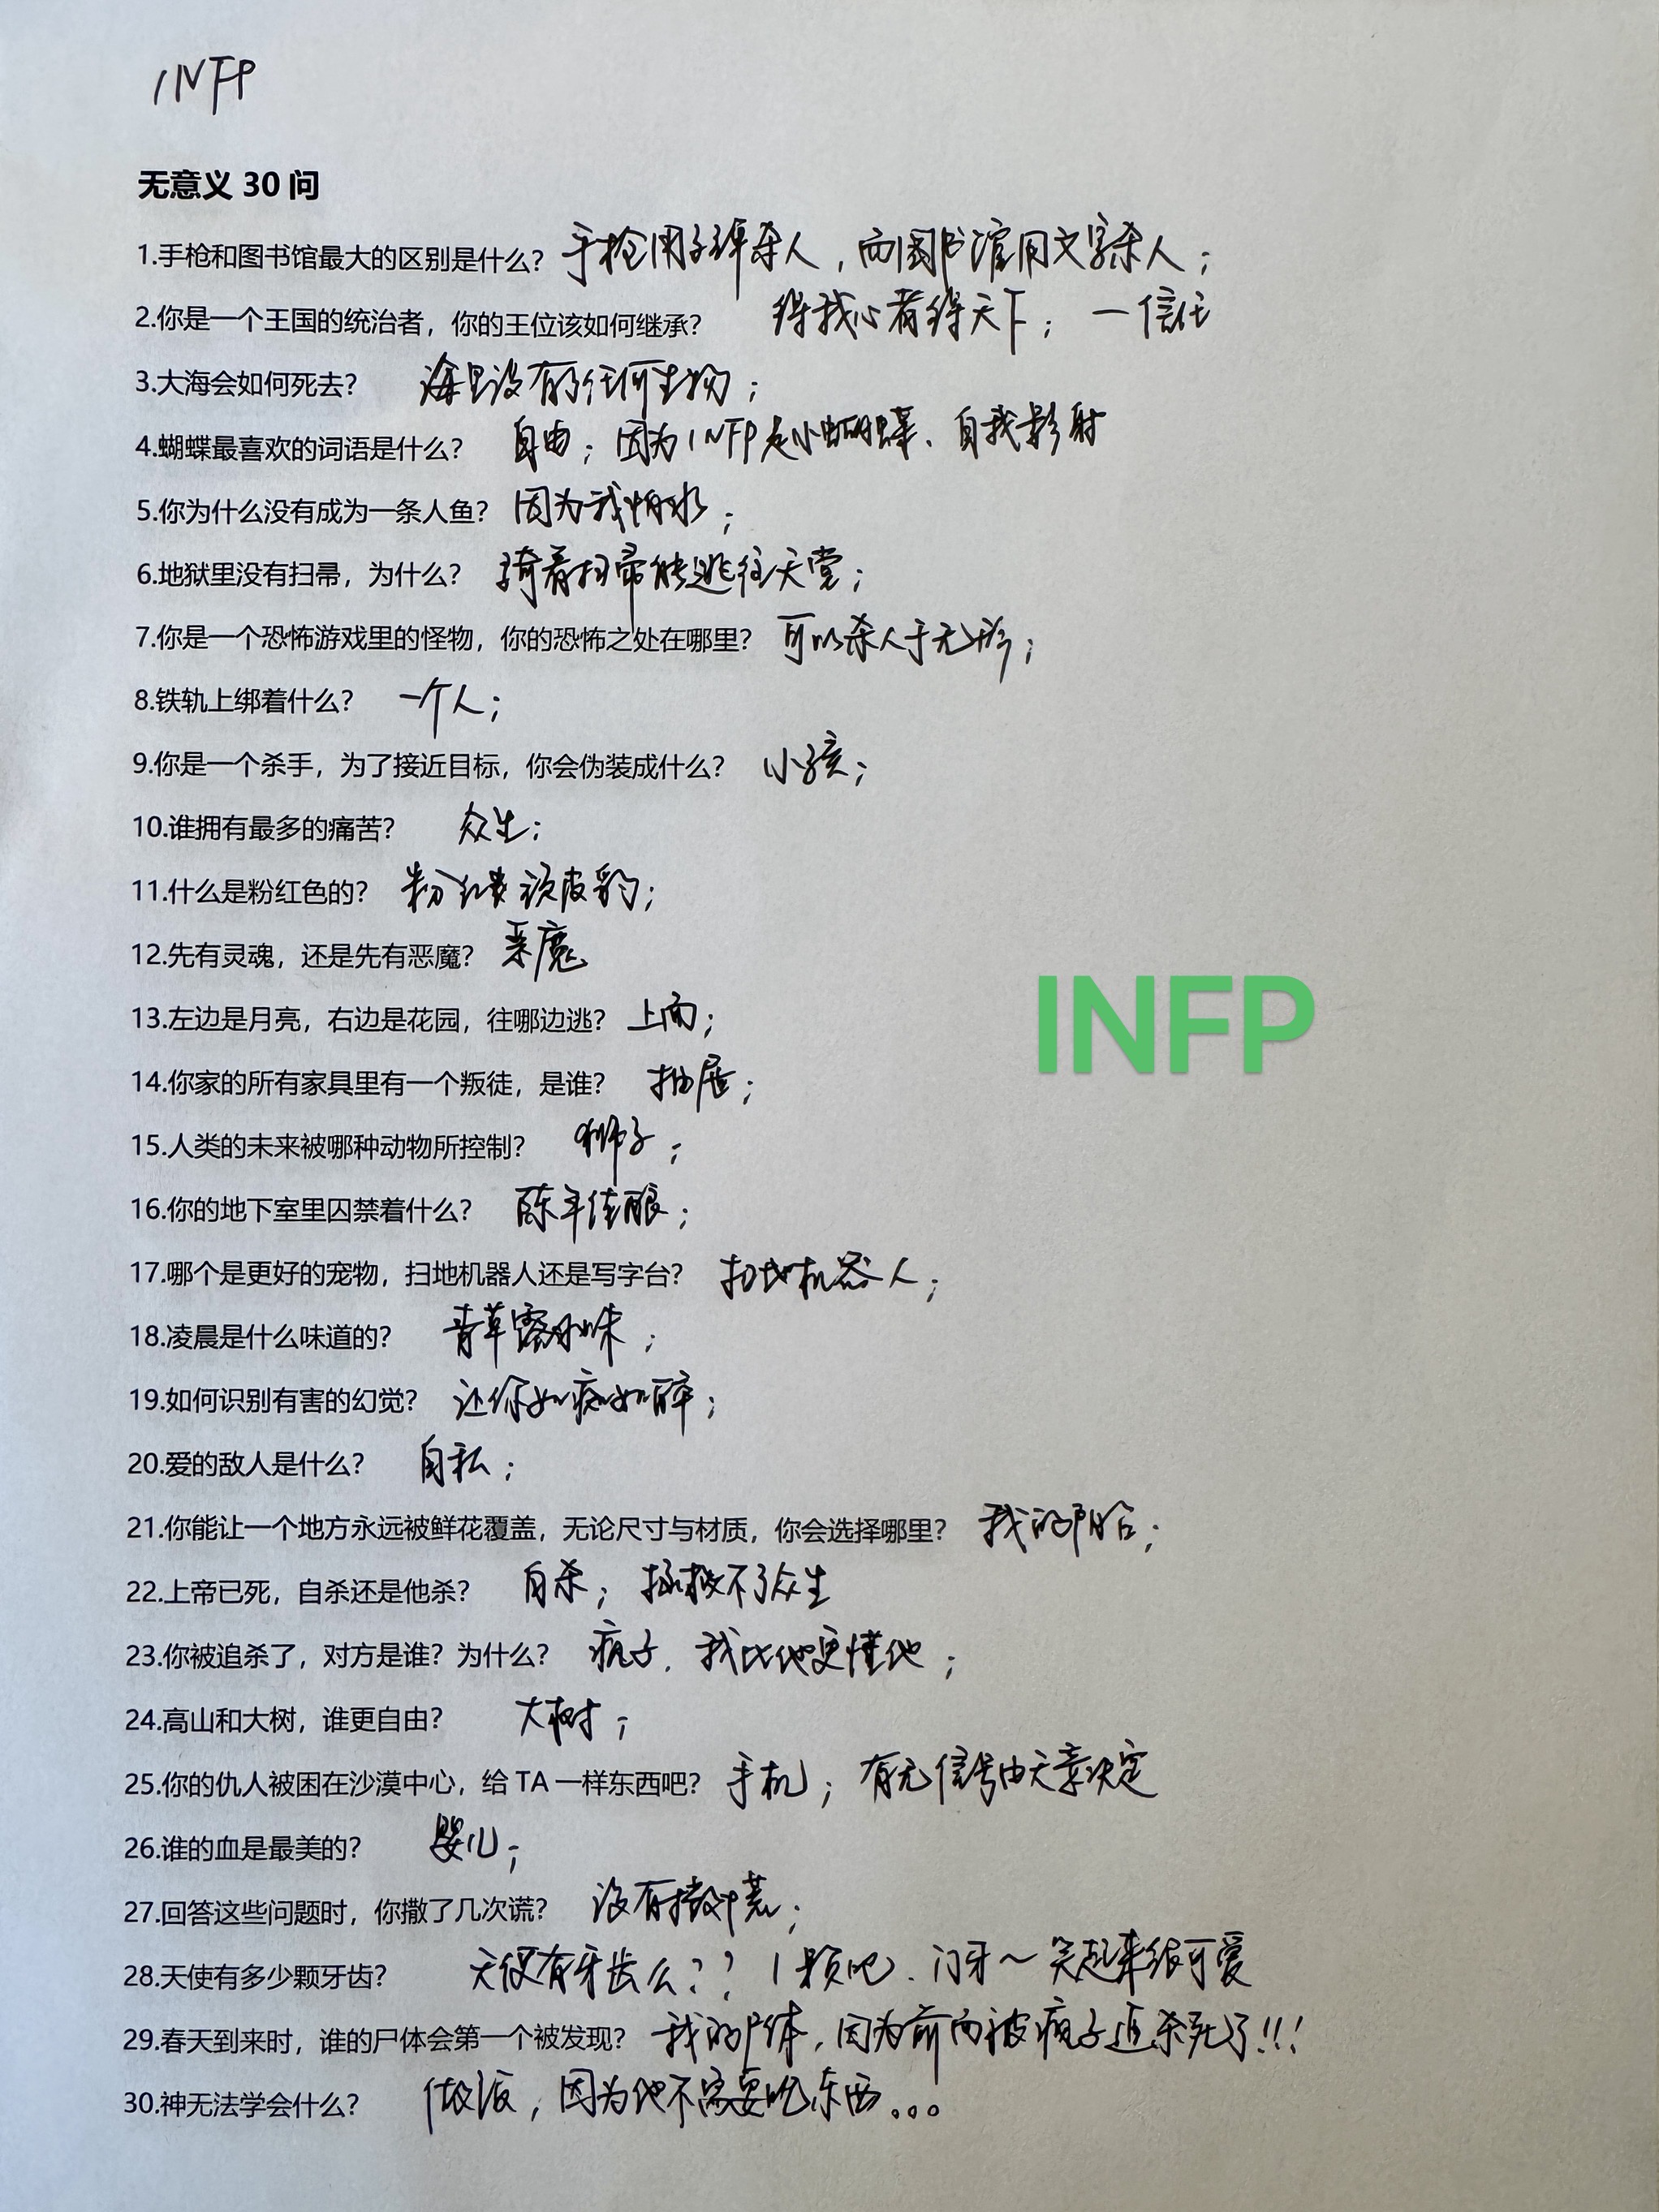 INFP
无意义 30 问
1.手枪和图书馆最大的区别是什么? 手枪用子弹杀人，而图书馆用文字杀人；
2.你是一个王国的统治者，你的王位该如何继承? 得我心者得天下；一信任
3.大海会如何死去? 海里没有了任何生物；
4.蝴蝶最喜欢的词语是什么? 自由；因为INFP是小蝴蝶、自我影射
5.你为什么没有成为一条人鱼? 因为我怕水；
6.地狱里没有扫帚，为什么? 骑着扫帚能逃往天堂；
7.你是一个恐怖游戏里的怪物，你的恐怖之处在哪里? 可以杀人于无形；
8.铁轨上绑着什么? 一个人；
9.你是一个杀手，为了接近目标，你会伪装成什么? 小孩；
10.谁拥有最多的痛苦? 众生；
11.什么是粉红色的? 粉红顽皮豹；
12.先有灵魂，还是先有恶魔? 恶魔
13.左边是月亮，右边是花园，往哪边逃? 上面；
INFP
14.你家的所有家具里有一个叛徒，是谁? 抽屉；
15.人类的未来被哪种动物所控制? 狮子；
16.你的地下室里囚禁着什么? 陈年佳酿；
17.哪个是更好的宠物，扫地机器人还是写字台? 扫地机器人；
18.凌晨是什么味道的? 青草露水味；
19.如何识别有害的幻觉? 让你如痴如醉；
20.爱的敌人是什么? 自私；
21.你能让一个地方永远被鲜花覆盖，无论尺寸与材质，你会选择哪里? 我的阳台；
22.上帝已死，自杀还是他杀? 自杀；拯救不了众生
23.你被追杀了，对方是谁? 为什么? 疯子，我比他更懂他；
24.高山和大树，谁更自由? 大树；
25.你的仇人被困在沙漠中心，给 TA 一样东西吧? 手机；有无信号由天意决定
26.谁的血是最美的? 婴儿；
27.回答这些问题时，你撒了几次谎? 没有撒谎；
28.天使有多少颗牙齿? 天使有牙齿么？？1颗吧、门牙～笑起来很可爱
29.春天到来时，谁的尸体会第一个被发现? 我的尸体，因为前面被疯子追杀死了!!!
30.神无法学会什么? 做饭，因为他不需要吃东西。。。